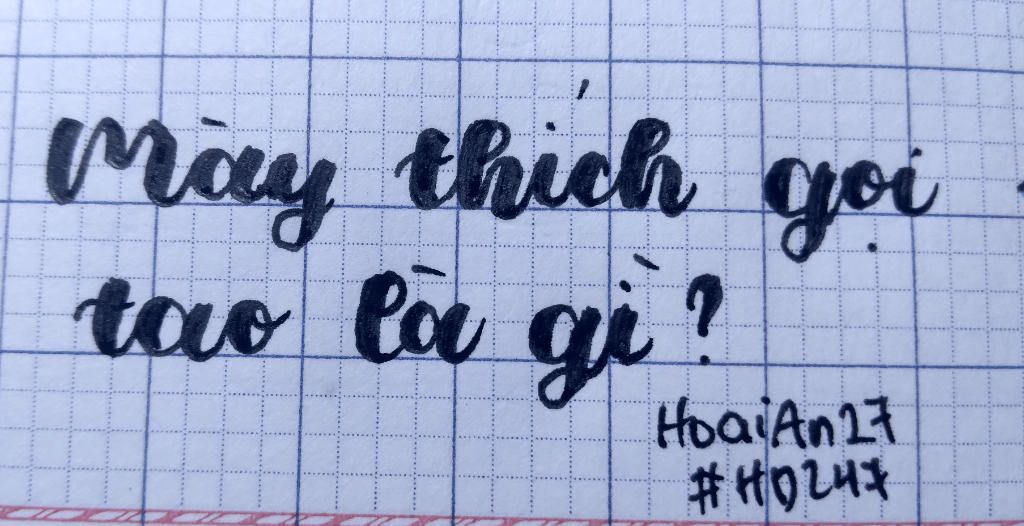 Mày thích gọi
tao là gì?
HoaiAn27
#HD247